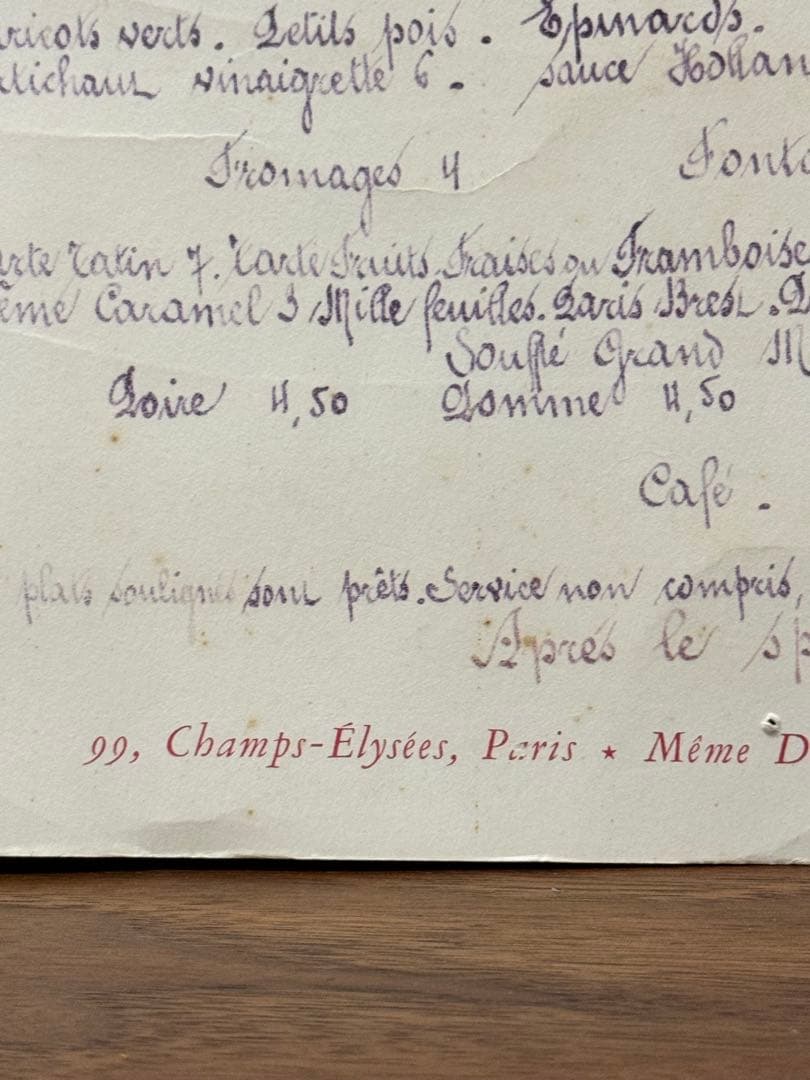 ricots verts. Petits pois. Epinards.
tichaut vinaigrette 6. sauce Hollan
Fromages 4 Fonta
arte Tatin 7. Tarte Fruits. Fraises ou Framboise
ème Caramel 3 Mille feuilles. Paris Brest.
Soufflé Grand M
Poire 4,50 Pomme 4,50
Café.
plats soulignés sont prêts. Service non compris,
Après le sp
99, Champs-Élysées, Paris ★ Même D